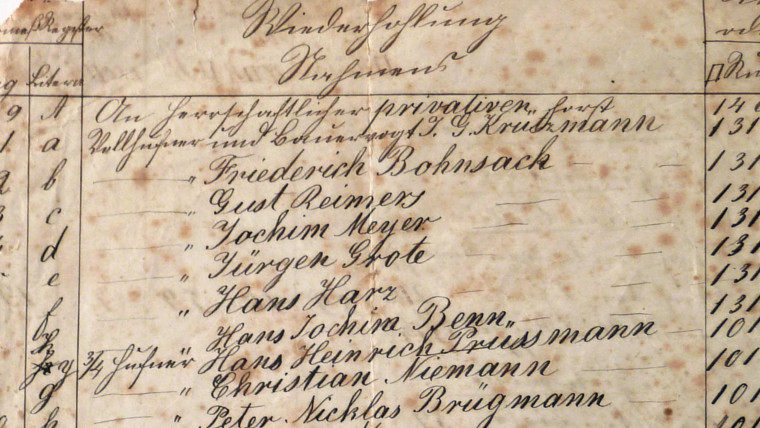 Wiederhohlung
Nahmens
Litera
9 A An Herrschaftlicher privativen Forst 14
1 a Vollhufner und Bauervogt J. G. Krützmann 131
b " Friederich Bohnsack 131
c " Gust Reimers 131
d " Jochim Meyer 131
e " Jürgen Grote 131
f " Hans Harz 131
Hans Jochim Benn 131
3/4 Hufner Hans Heinrich Prüssmann 101
g " Christian Niemann 101
h " Peter Nicklas Brügmann 101